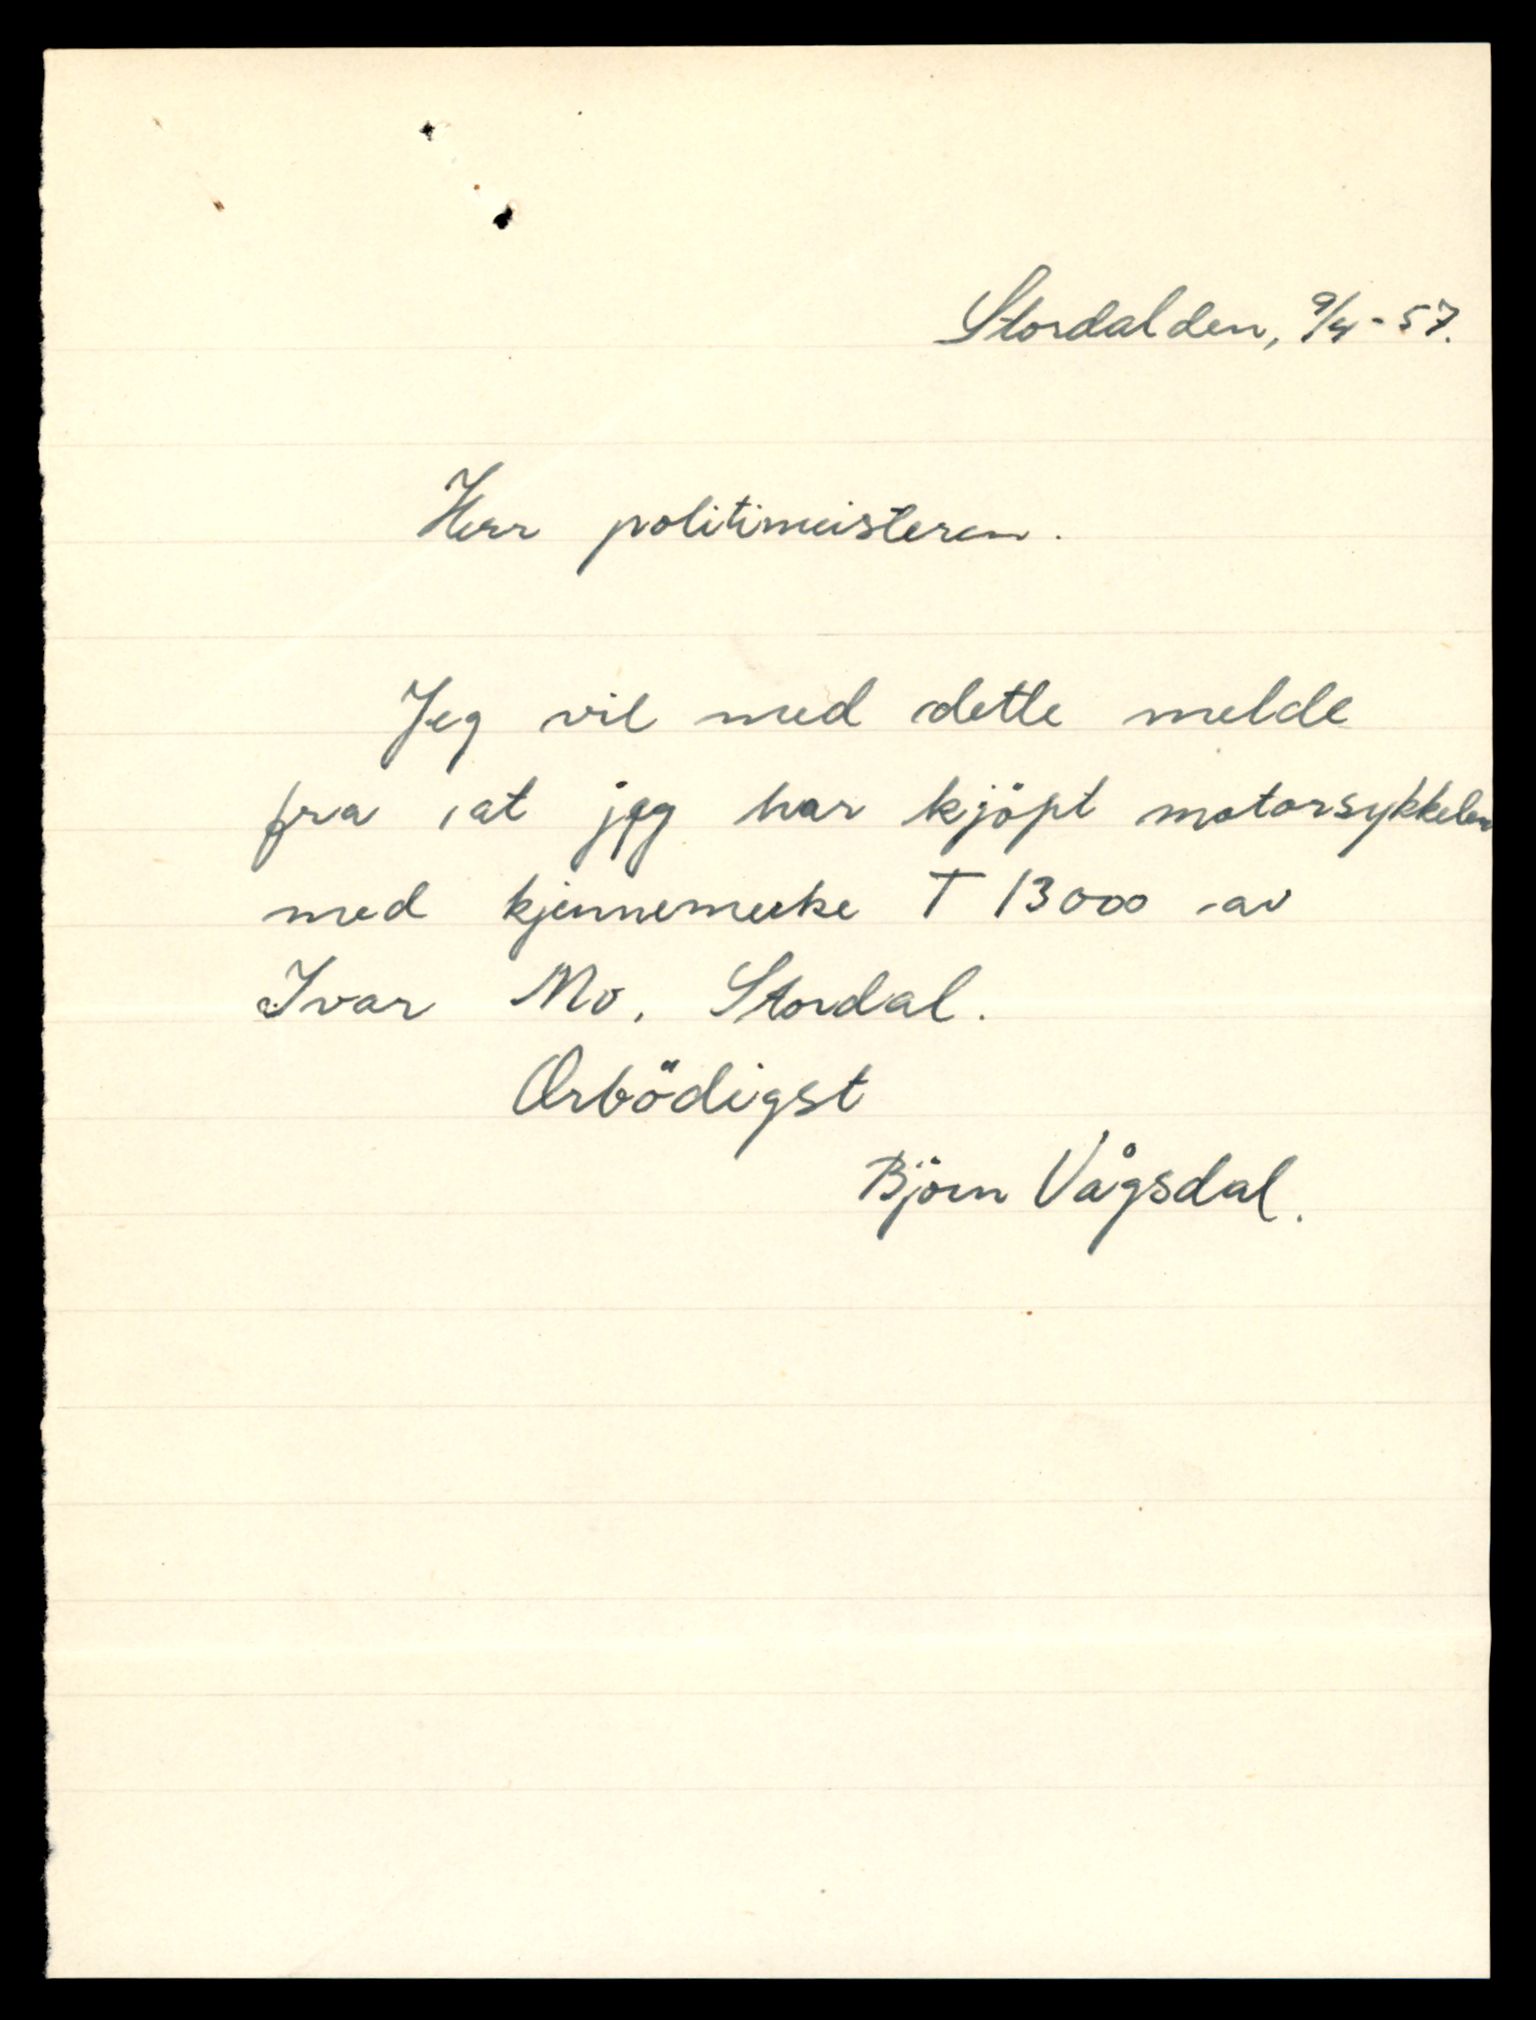 Stordal den, 9/4 - 57.
Herr politimeisteren.
Jeg vil med dette melde
fra at jeg har kjöpt motorsykkelen
med kjennemerke T 13000 av
Ivar Mo, Stordal.
Ærbödigst
Björn Vågsdal.